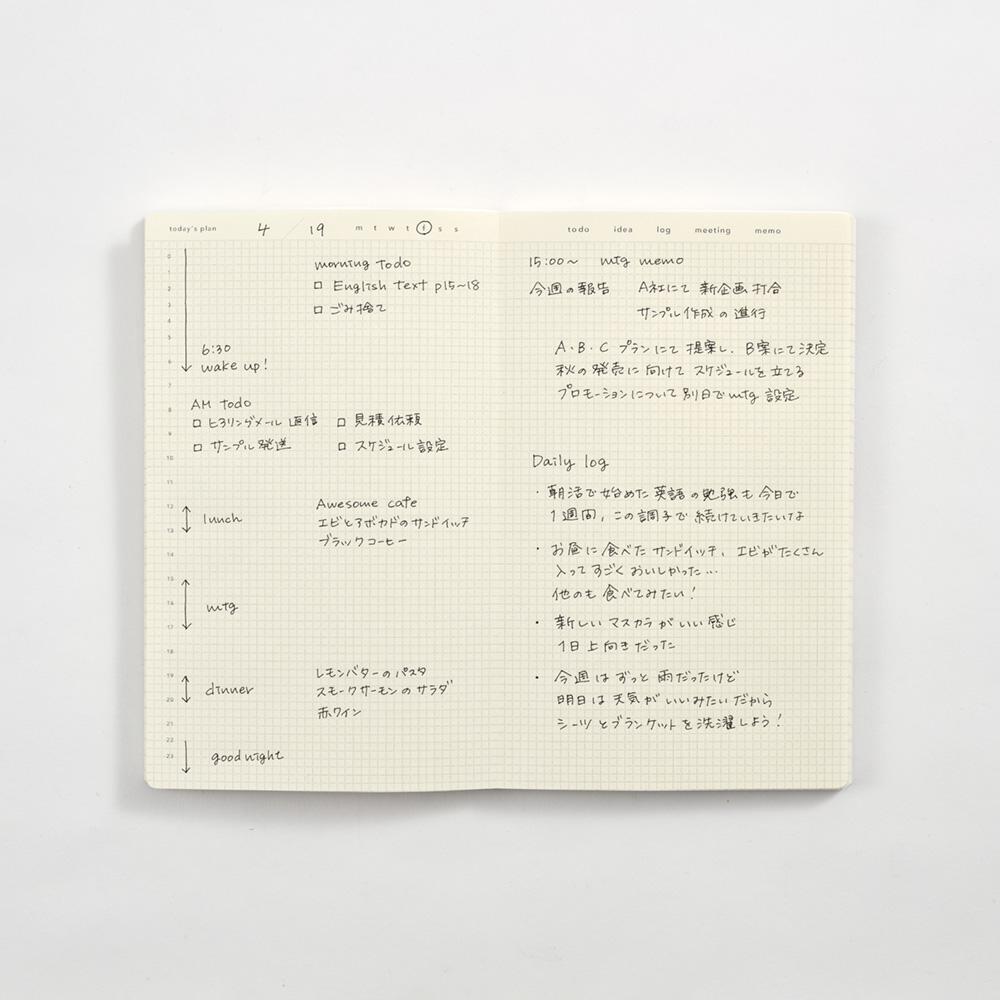 today's plan 4 / 19 m t w t f s s
morning todo
□ English text p15~18
□ ごみ捨て
0
1
2
3
4
5
6
6:30
wake up!
AM todo
□ ヒアリングメール 返信 □ 見積依頼
□ サンプル発送 □ スケジュール設定
8
9
10
11
12
13
lunch
Awesome cafe
エビとアボカドのサンドイッチ
ブラックコーヒー
15
16
17
mtg
18
19
20
21
dinner
レモンバターのパスタ
スモークサーモンのサラダ
赤ワイン
22
23
good night
todo idea log meeting memo
15:00~ mtg memo
今週の報告 A社にて 新企画打合
サンプル作成の進行
A・B・C プランにて 提案し、B案にて決定
秋の発売に向けて スケジュールを立てる
プロモーションについて 別日でmtg 設定
Daily log
・朝活で始めた英語の勉強も今日で
1週間、この調子で続けていきたいな
・お昼に食べたサンドイッチ、エビがたくさん
入ってすごくおいしかった…
他のも食べてみたい!
・新しいマスカラがいい感じ
1日上向きだった
・今週はずっと雨だったけど
明日は天気がいいみたいだから
シーツとブランケットを洗濯しよう!